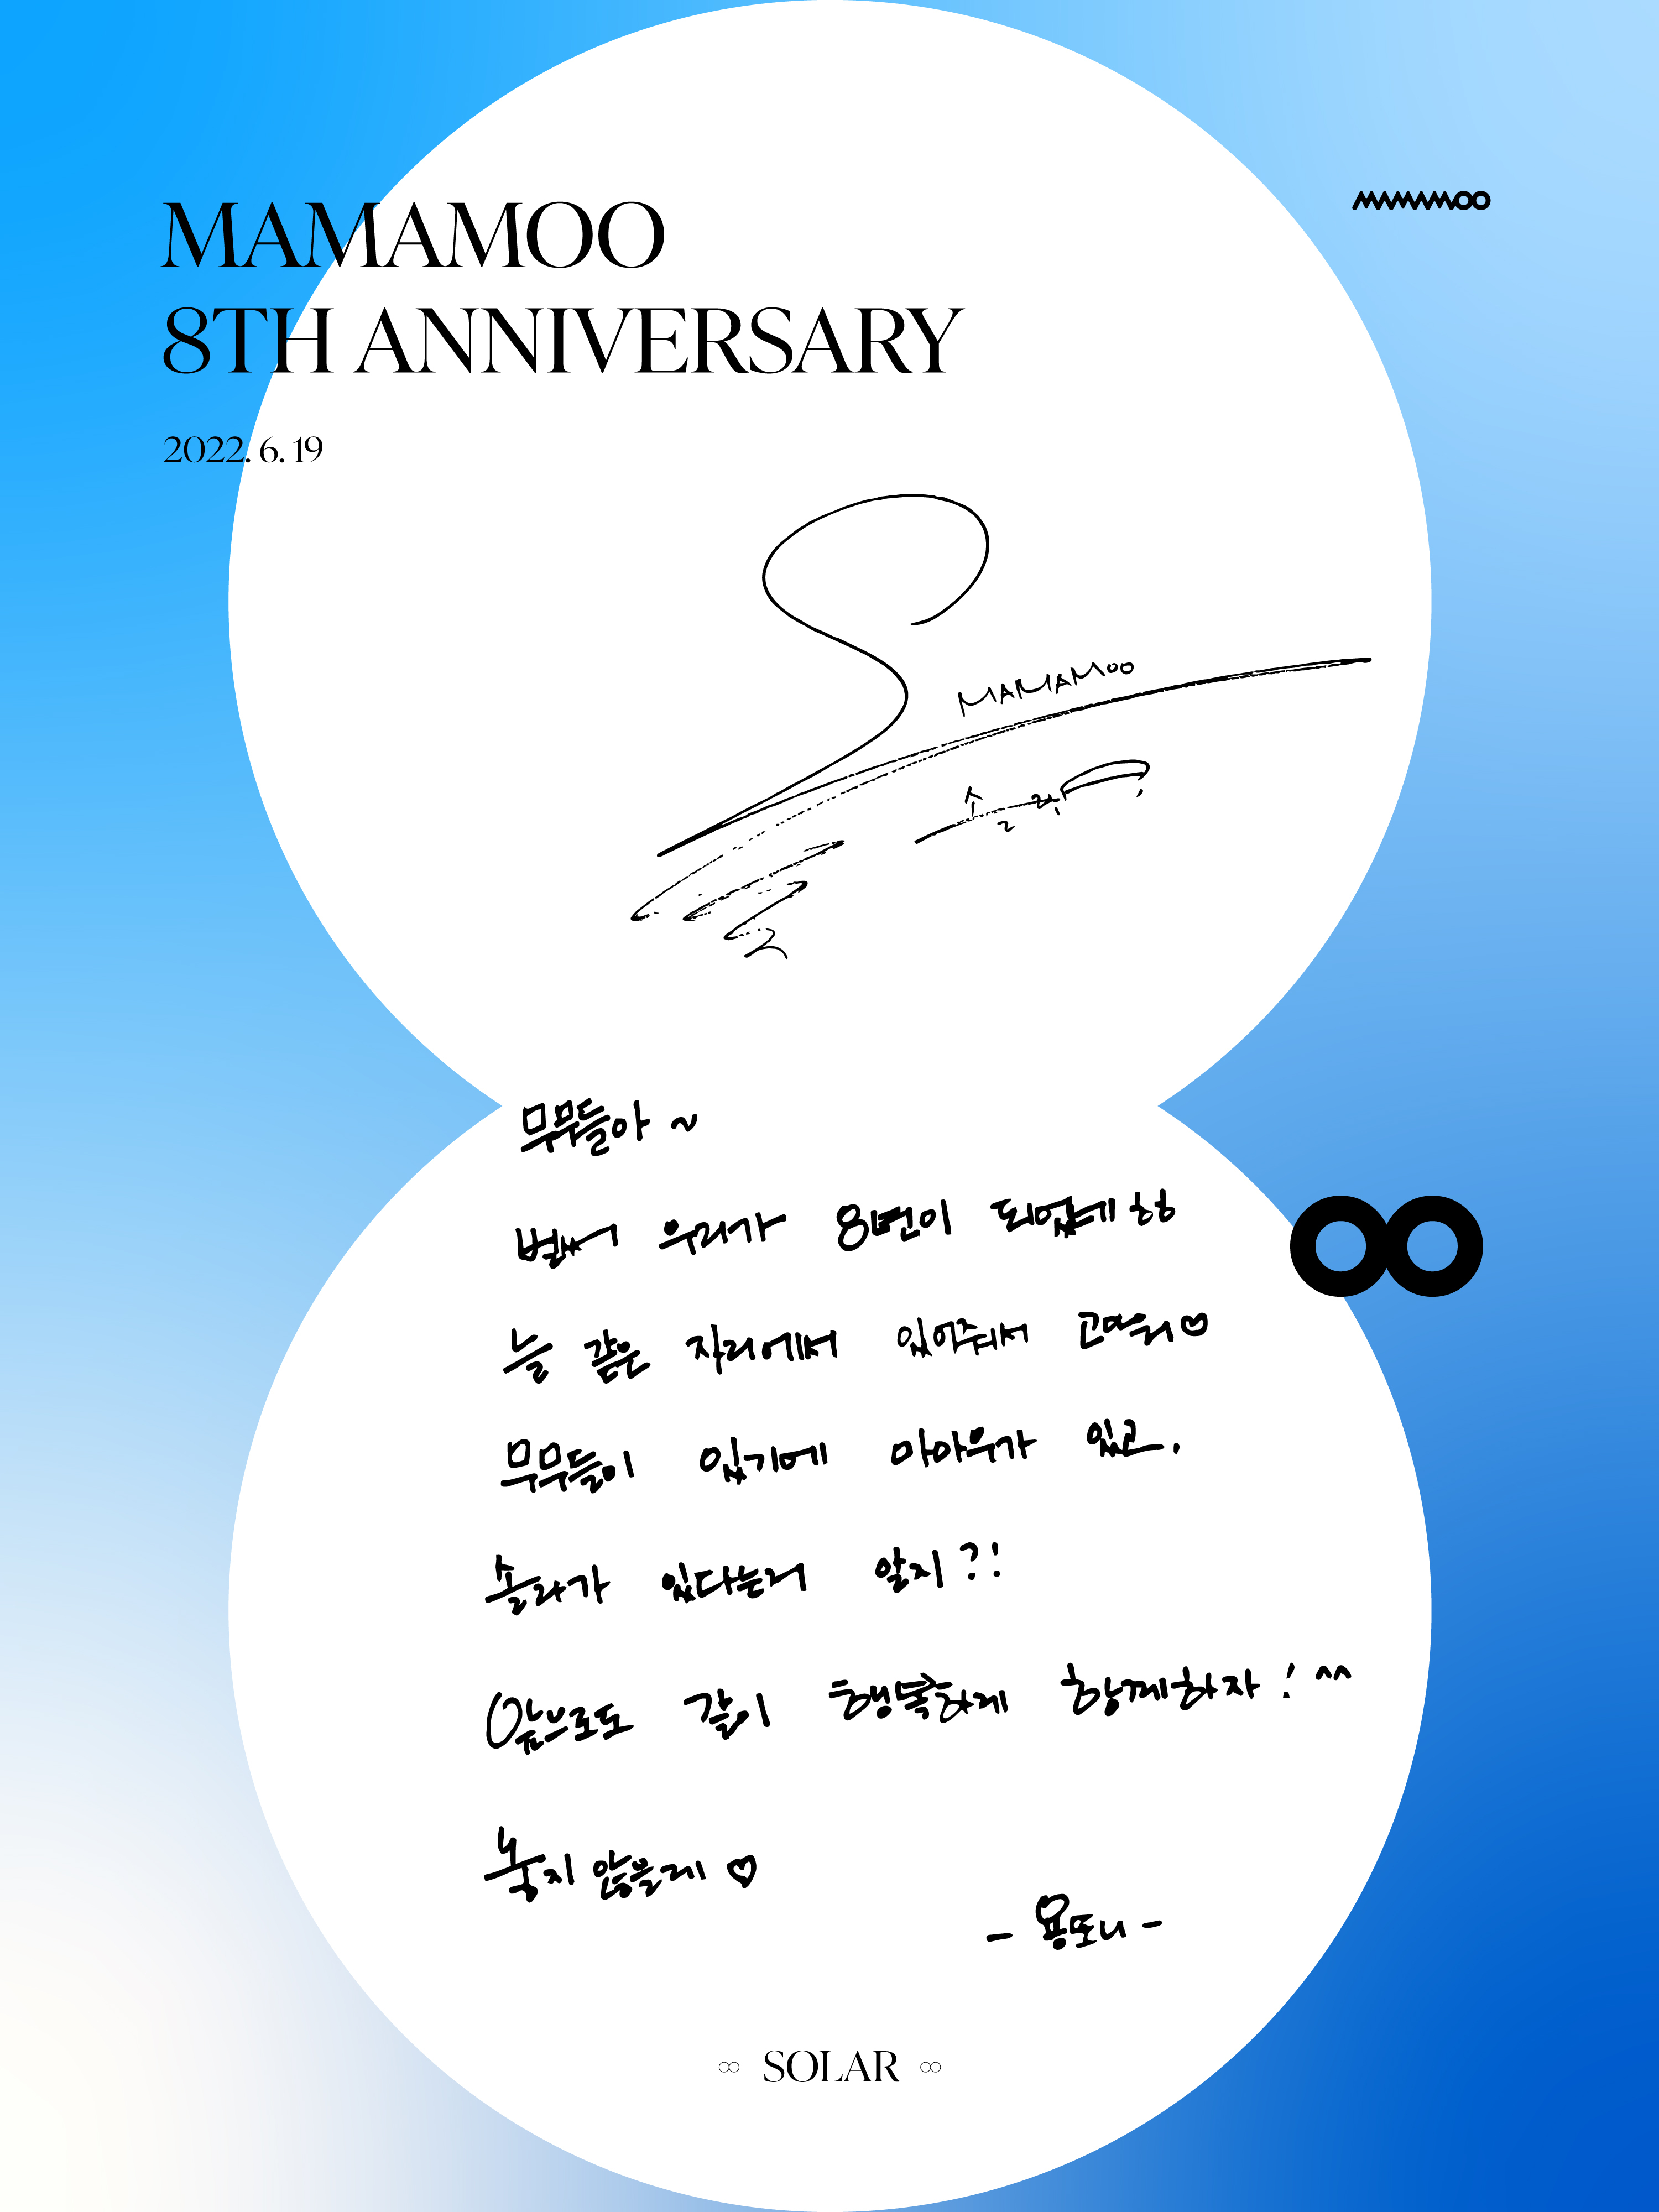 MAMAMOO
mamamoo
8TH ANNIVERSARY
2022. 6. 19
MAMAMOO
솔라
무무들아 ~
벌써 우리가 8년이 되었네 헝헝
늘 같은 자리에서 있어줘서 고마워♡
무무들이 있기에 마마무가 있고.
솔라가 있다는거 알지?!
앞으로도 같이 행복하게 함께하자! ^^
놓지 않을게 ♡
- 용또니 -
∞ SOLAR ∞